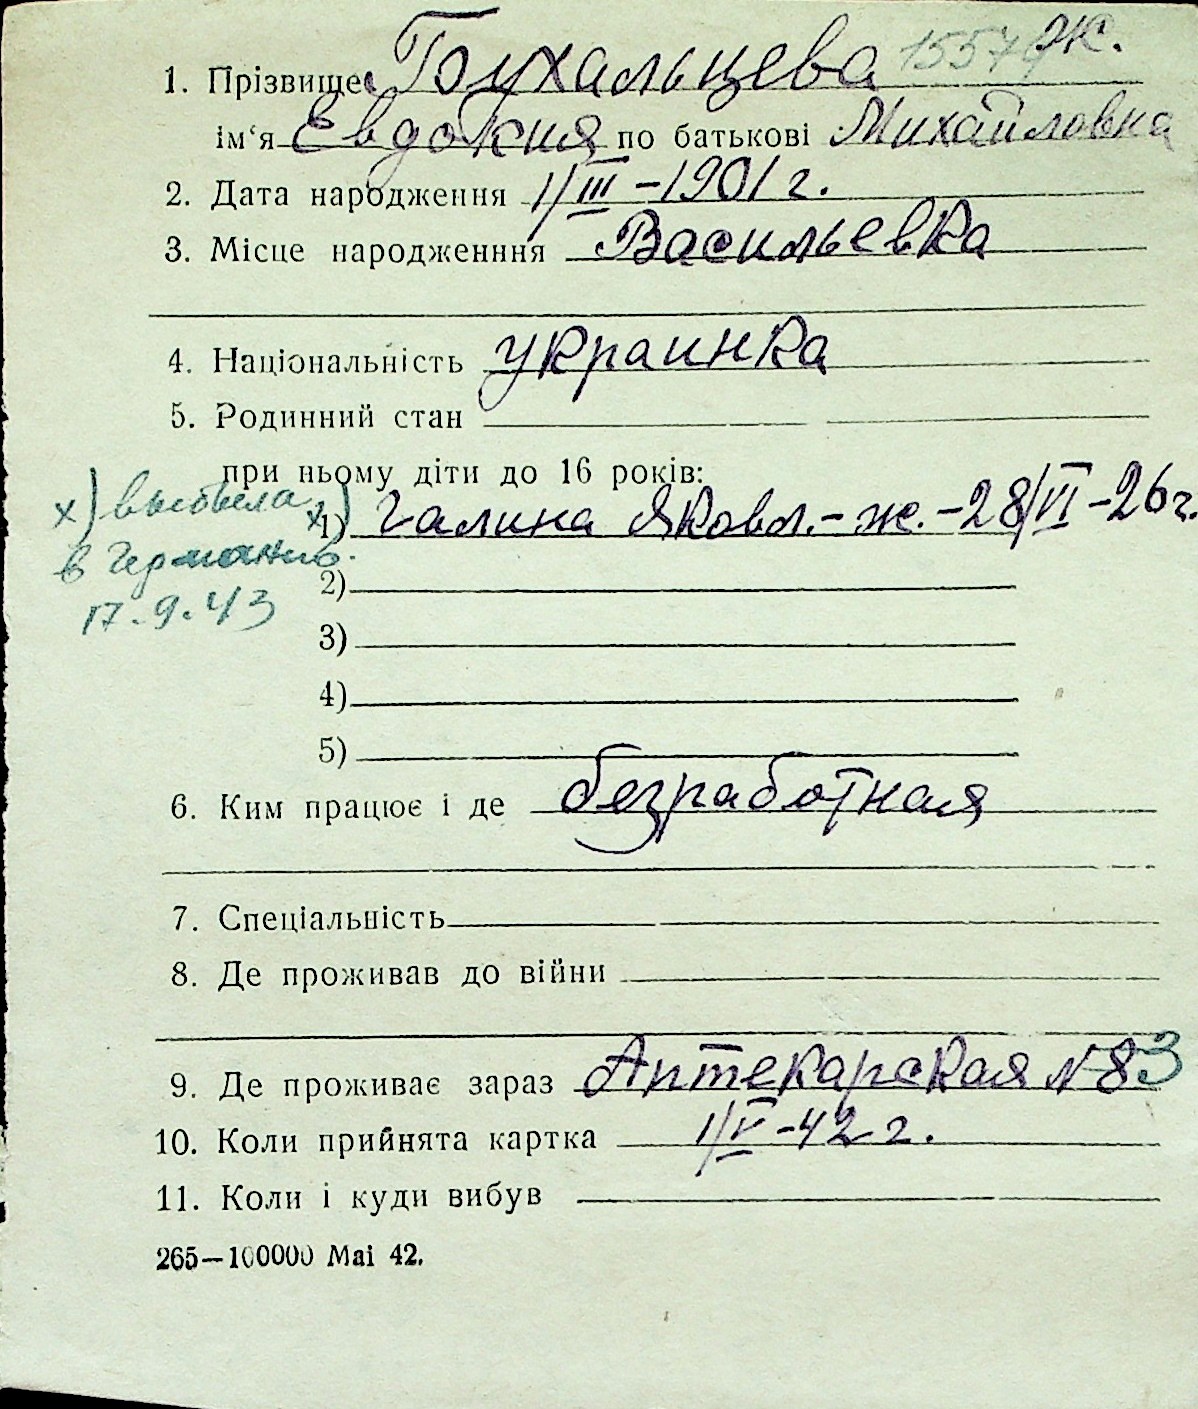 1. Прізвище Бухальцева 15574 ж.
ім‘я Евдокия по батькові Михайловна
2. Дата народження 1/III –1901 г.
3. Місце народженння Васильевка
4. Національність украинка
5. Родинний стан
при ньому діти до 16 років:
х) выбыла х 1) Галина Яковл. – ж. – 28/VI – 26 г.
в Германию. 2)
17.9.43
3)
4)
5)
6. Ким працює і де безработная
7. Спеціальність
8. Де проживав до війни
9. Де проживає зараз Аптекарская № 83
10. Коли прийнята картка 1/V –42 г.
11. Коли і куди вибув
265—100000 Mai 42.